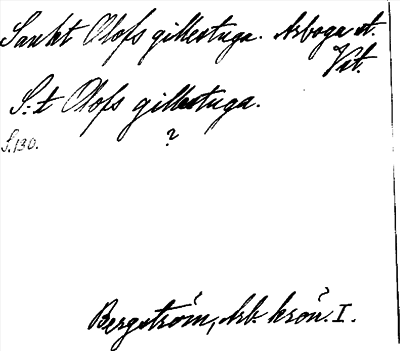 Sankt Olofs gillestuga. Arboga st.
Vstl.
S:t Olofs gillestuga.
S. 130.
?
Bergström, Arb. krön. I.